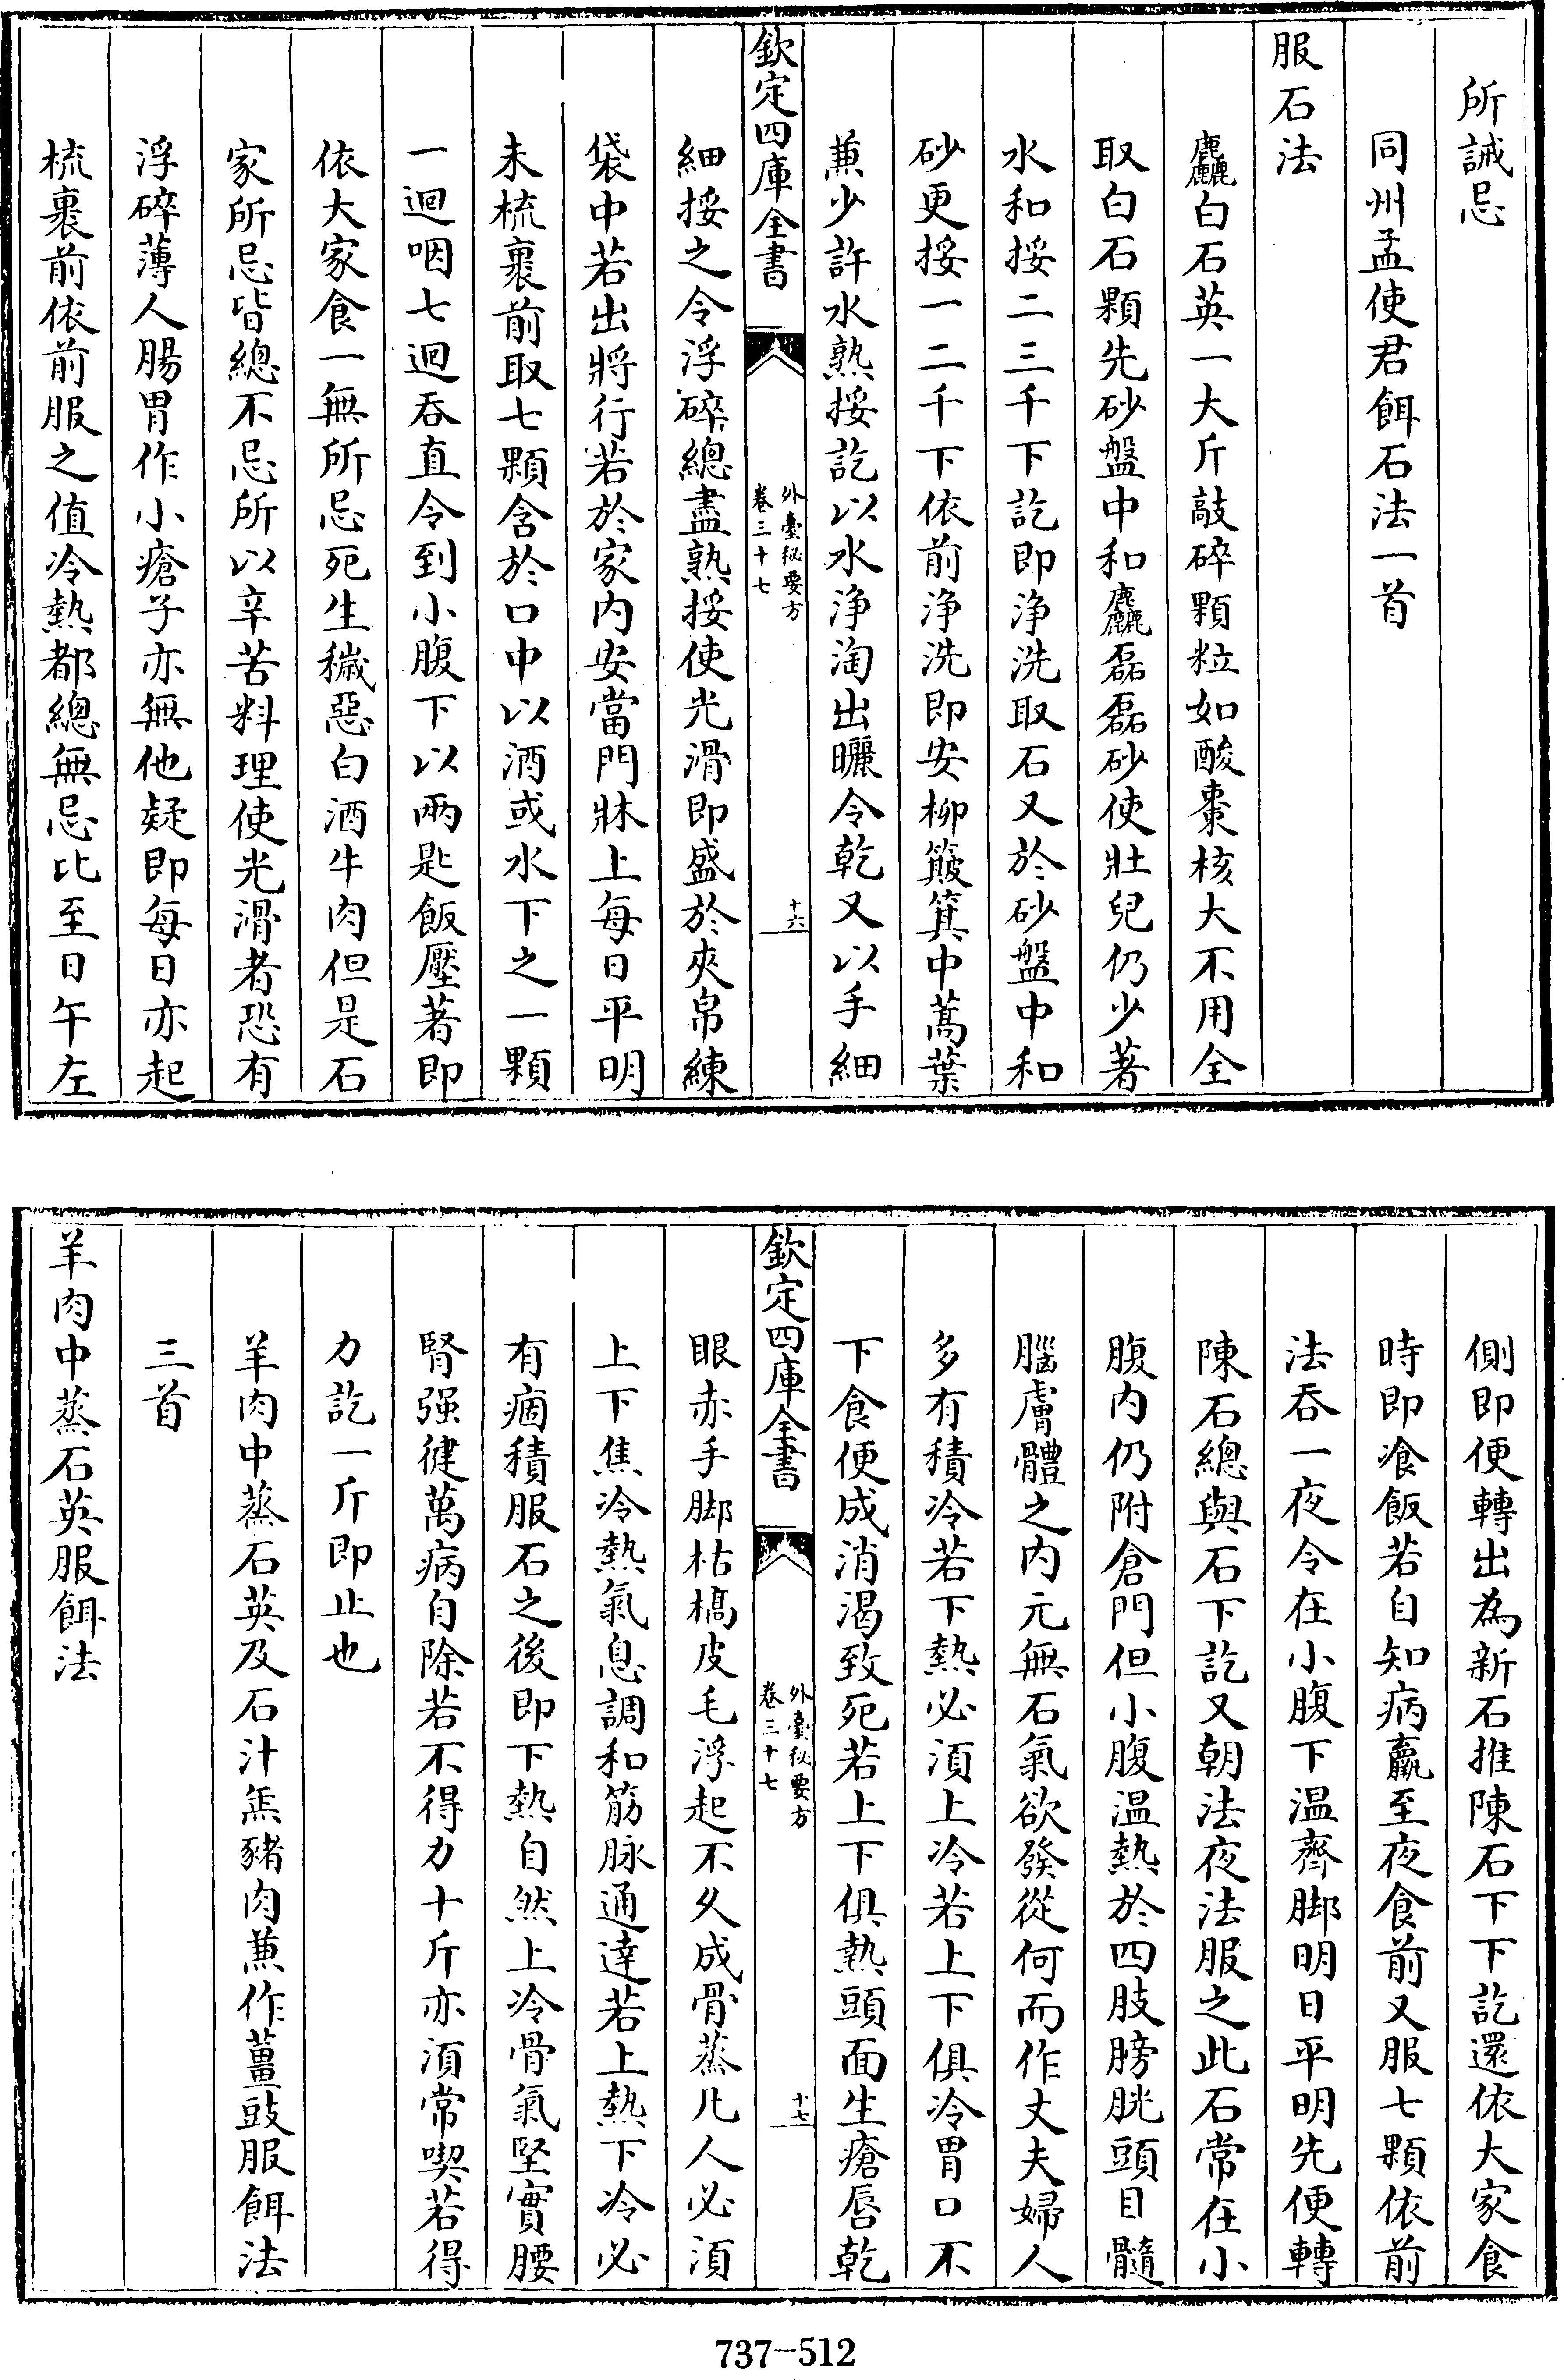 所誡忌
同州孟使君餌石法一首
服石法
麤白石英一大斤敲碎顆粒如酸棗核大不用全
取白石顆先砂盤中和麤磊磊砂使壯兒仍少著
水和挼二三千下訖即浄洗取石又於砂盤中和
砂更挼一二千下依前浄洗即安柳簸箕中蒿葉
兼少許水熟挼訖以水浄淘出曬令乾又以手細
欽定四庫全書
外臺秘要方
卷三十七
十六
細挼之令浮碎總盡熟挼使光滑即盛於夾帛練
袋中若出將行若於家内安當門牀上每日平明
未梳裹前取七顆含於口中以酒或水下之一顆
一迴咽七迴吞直令到小腹下以兩匙飯壓著即
依大家食一無所忌死生穢惡白酒牛肉但是石
家所忌皆總不忌所以辛苦料理使光滑者恐有
浮碎薄人腸胃作小瘡子亦無他疑即每日亦起
梳裹前依前服之值冷熱都總無忌比至日午左
側即便轉出為新石推陳石下下訖還依大家食
時即飡飯若自知病羸至夜食前又服七顆依前
法吞一夜令在小腹下温齊脚明日平明先便轉
陳石總與石下訖又朝法夜法服之此石常在小
腹内仍附倉門但小腹温熱於四肢膀胱頭目髓
腦膚體之内元無石氣欲發從何而作丈夫婦人
多有積冷若下熱必湏上冷若上下俱冷胃口不
下食便成消渴致死若上下俱熱頭面生瘡唇乾
欽定四庫全書
外臺秘要方
卷三十七
十七
眼赤手脚枯槁皮毛浮起不久成骨蒸凡人必湏
上下焦冷熱氣息調和筋脉通達若上熱下冷必
有痼積服石之後即下熱自然上冷骨氣堅實腰
腎强健萬病自除若不得力十斤亦湏常喫若得
力訖一斤即止也
羊肉中蒸石英及石汁缹豬肉兼作薑豉服餌法
三首
羊肉中蒸石英服餌法
737-512